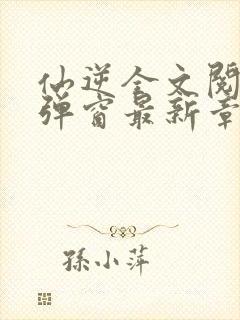 仙逆全文阅
弹窗最新章
孫小萍